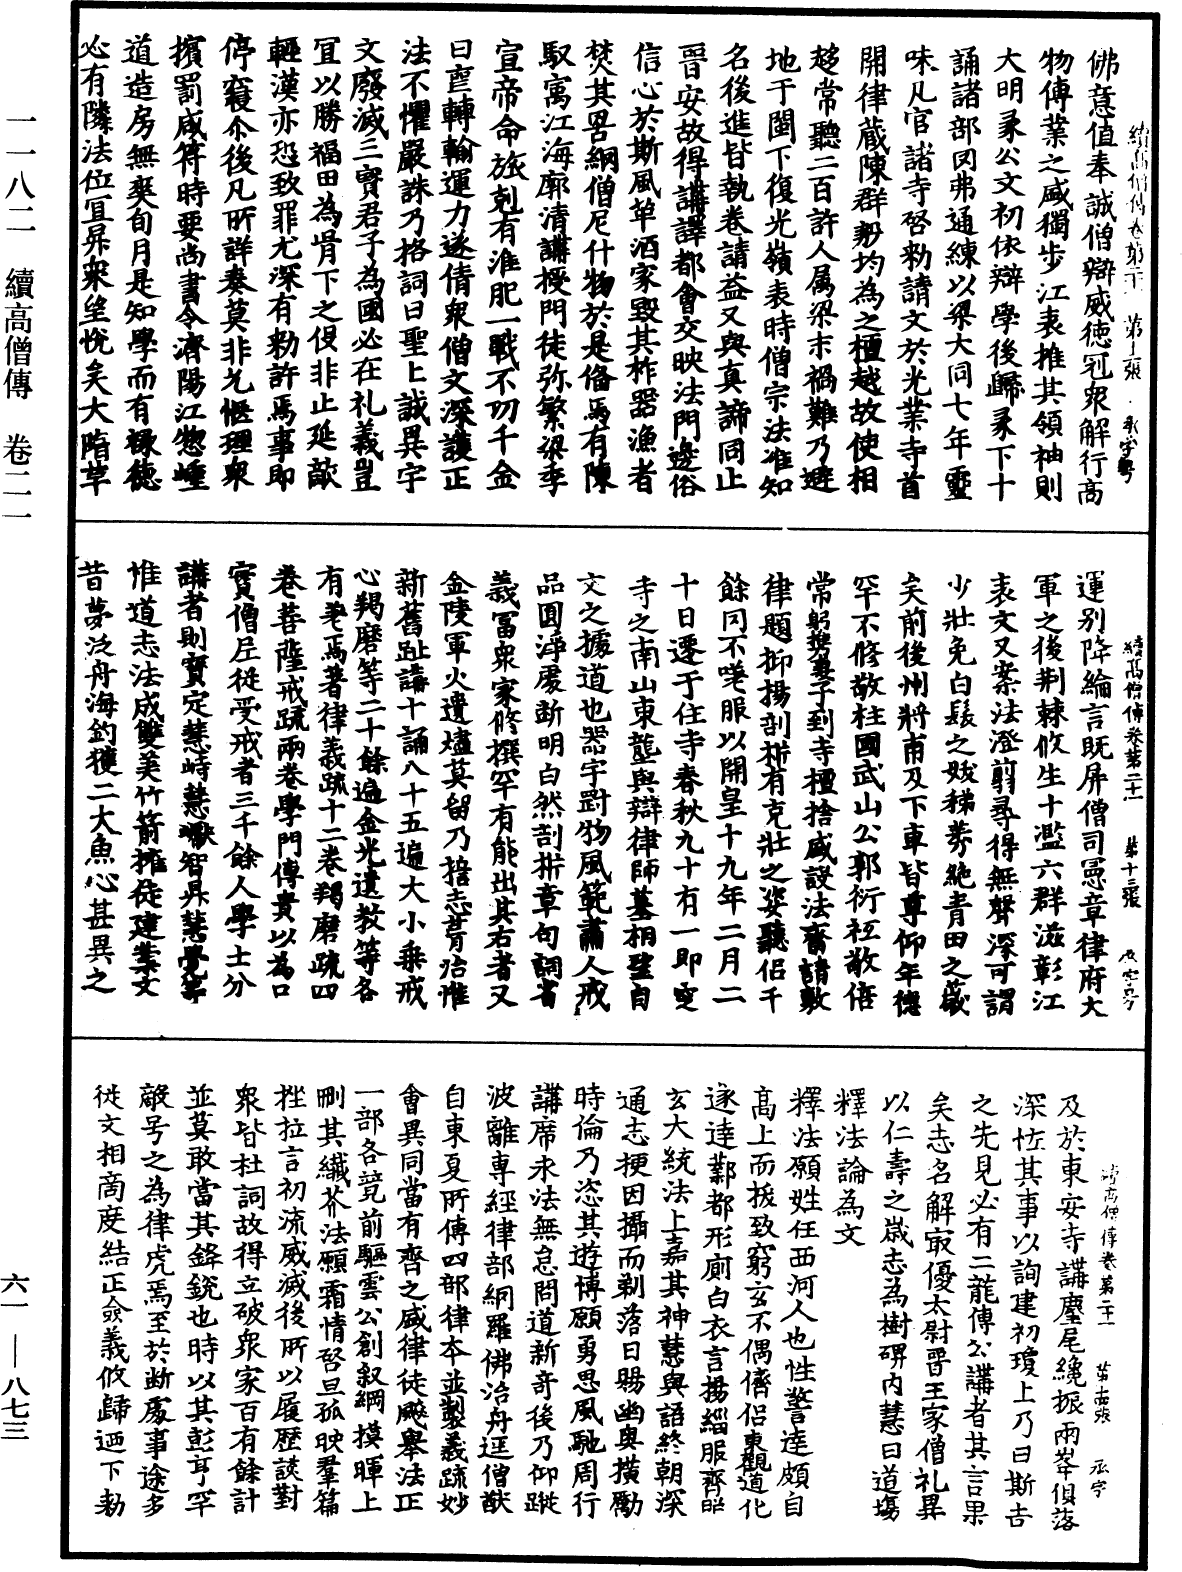 一一八二　續高僧傳　卷二一
六一—八七三
佛意值奉誠僧辯威德冠衆解行高
物傳業之盛獨步江表推其領袖則
大明彖公文初依辯學後歸彖下十
誦諸部罔弗通練以梁大同七年靈
味凡官諸寺啓勑請文於光業寺首
開律藏陳群勑均為之檀越故使相
趍常聽二百許人属梁末禍難乃避
地于閩下復光嶺表時僧宗法准知
名後進皆執卷請益又與真諦同止
晉安故得講譯都會交映法門邊俗
信心於斯風草酒家毀其柞器漁者
焚其罟網僧尼什物於是俻焉有陳
馭寓江海廓清講授門徒弥繁梁季
宣帝命旅剋有淮肥一戰不刃千金
日亶轉輸運力遂倩衆僧文深護正
法不懼嚴誅乃格詞曰聖上誠異宇
文廢滅三寶君子為國必在礼義豈
冝以勝福田為胥下之伇非止延敵
輕漢亦恐致罪尤深有勑許焉事即
停寢尒後凡所詳奏莫非允愜理衆
擯罰咸符時要尚書令濟陽江惣崕
道造房無爽旬月是知學而有禄德
必有隣法位冝昇衆望悅矣大隋草
運别降綸言既屏僧司憲章律府大
軍之後荆棘攸生十濫六群滋彰江
表文又案法澄翦尋得無聲深可謂
少壯免白髮之妭稊莠絶青田之薉
矣前後州將甫及下車皆尊仰年德
罕不修敬柱國武山公郭衍祗敬倍
常躬携妻子到寺檀捨盛設法齋請敷
律題抑揚剖析有克壯之姿聽侣千
餘同不嘆服以開皇十九年二月二
十日遷于住寺春秋九十有一即窆
寺之南山東壟與辯律師墓相望自
文之據道也器宇對物風範肅人戒
品圓淨處斷明白然剖析章句詞省
義冨衆家修撰罕有能出其右者又
金陵軍火遺燼莫留乃捨志葺治惟
新舊趾講十誦八十五遍大小乗戒
心羯磨等二十餘遍金光遺教等各
有差焉著律義疏十二卷羯磨疏四
卷菩薩戒疏兩卷學門傳貴以為口
實僧尼從受戒者三千餘人學士分
講者則寶定慧峙慧巘智昇慧覺等
惟道志法成雙美竹箭擁徒建業文
昔夢泛舟海釣獲二大魚心甚異之
及於東安寺講麈尾纔振兩峯俱落
深恠其事以詢建初瓊上乃曰斯吉
之先見必有二龍傳公講者其言果
矣志名解㝡優太尉晋王家僧礼異
以仁壽之歲志為樹碑内慧日道場
釋法論為文
釋法願姓任西河人也性警達頗自
高上而拔致窮玄不偶儕侣東觀道化
遂達鄴都形廁白衣言揚緇服齊昭
玄大統法上嘉其神慧與語終朝深
通志梗因攝而剃落日賜幽奥横勵
時倫乃恣其遊博願勇思風馳周行
講席求法無怠問道新奇後乃仰蹤
波離專經律部綱羅佛治舟逕僧猷
自東夏所傳四部律本並製義疏妙
會異同當有齊之盛律徒飈舉法正
一部各竟前驅雲公創叙綱摸暉上
刪其纎芥法願霜情啓旦孤映羣篇
挫拉言初流威滅後所以履歴談對
衆皆杜詞故得立破衆家百有餘計
並莫敢當其鋒銳也時以其彭亨罕
敵号之為律虎焉至於斷處事途多
從文相商度結正僉義攸歸迺下勑